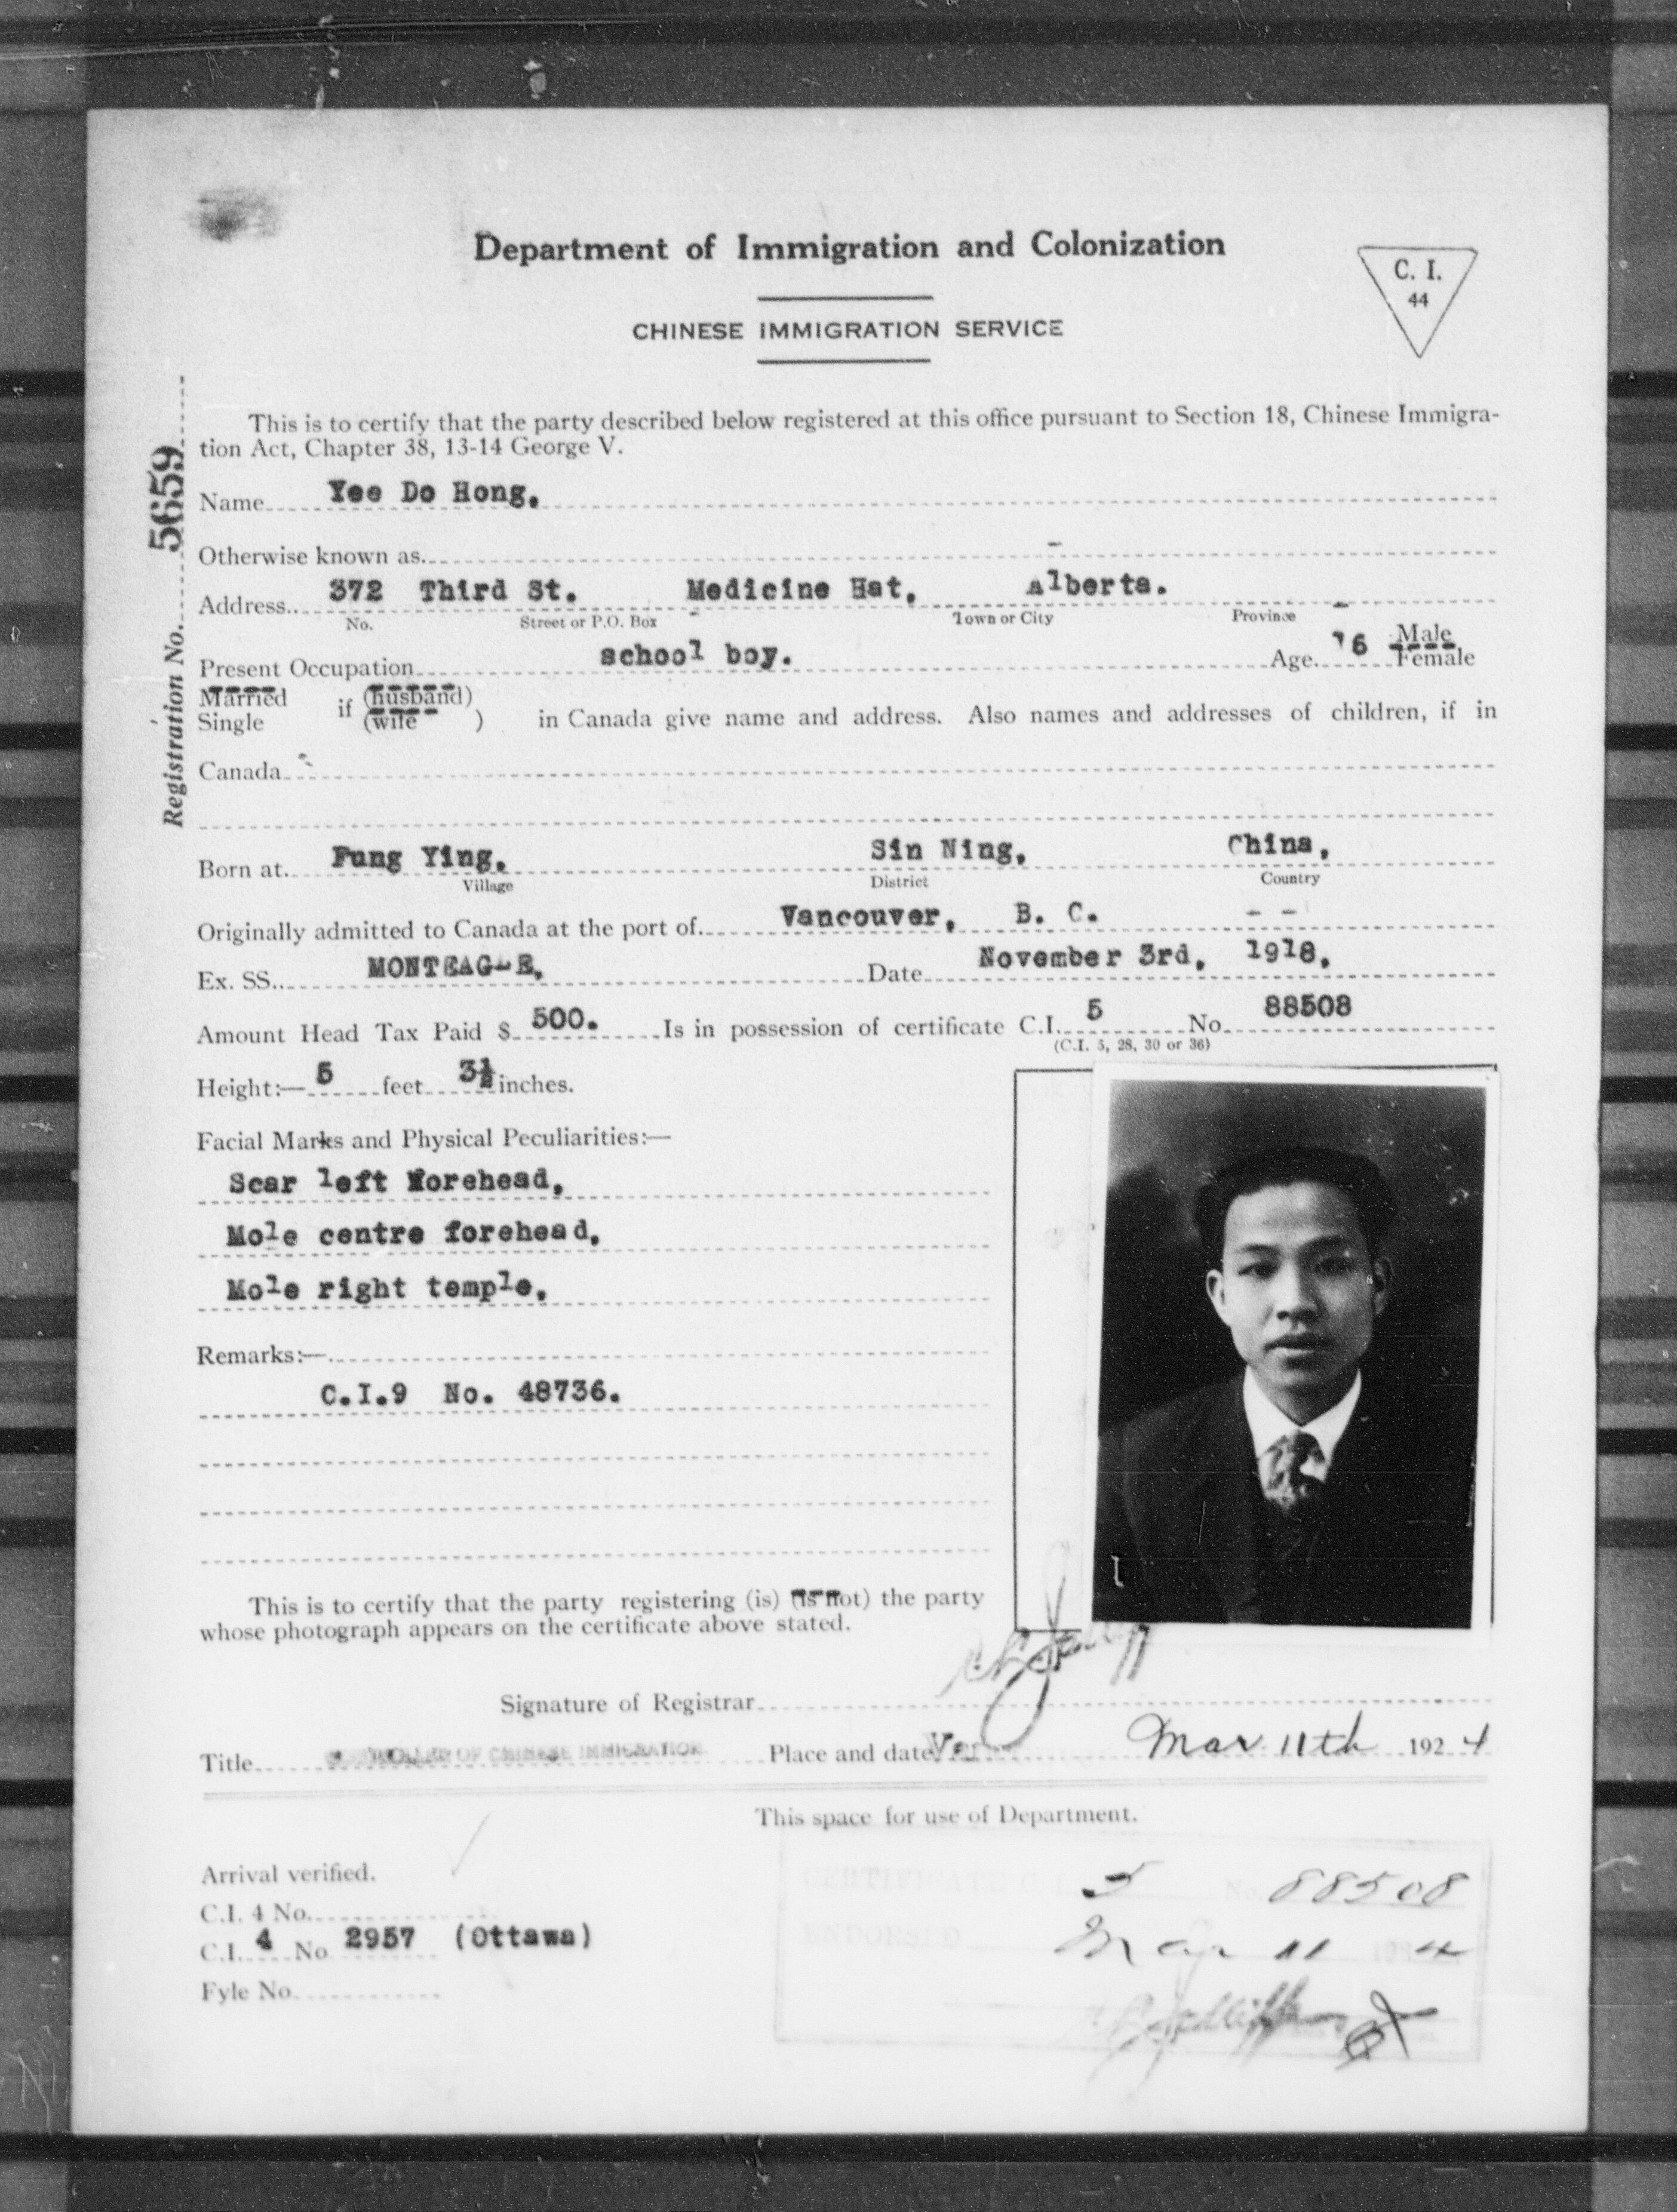 Department of Immigration and Colonization
C. I.
44
CHINESE IMMIGRATION SERVICE
Registration No. 5659
This is to certify that the party described below registered at this office pursuant to Section 18, Chinese Immigra-
tion Act, Chapter 38, 13-14 George V.
Name Yee Do Hong,
Otherwise known as. -
Address.. 372 Third St. Medicine Hat, Alberta.
No. Street or P.O. Box Town or City Province
Present Occupation school boy. Age. 16 Male
Female
Married if (husband)
Single (wife ) in Canada give name and address. Also names and addresses of children, if in
Canada
Born at.. Fung Ying, Sin Ning, China,
Village District Country
Originally admitted to Canada at the port of. Vancouver, B. C. - -
Ex. SS.. MONTEAGLE, Date November 3rd, 1918,
Amount Head Tax Paid $ 500. Is in possession of certificate C.I. 5 No. 88508
(C.I. 5, 28, 30 or 36)
Height:— 5 feet 3½ inches.
Facial Marks and Physical Peculiarities:—
Scar left forehead,
Mole centre forehead,
Mole right temple,
Remarks:—
C.I.9 No. 48736.
This is to certify that the party registering (is) (is not) the party
whose photograph appears on the certificate above stated.
Signature of Registrar
Title CONTROLLER OF CHINESE IMMIGRATION Place and date Mar 11th 1924
This space for use of Department.
Arrival verified.
C.I. 4 No.
C.I. 4 No 2957 (Ottawa)
Fyle No.
CERTIFICATE C.I. 5 No. 88508
ENDORSED Mar 11 1924